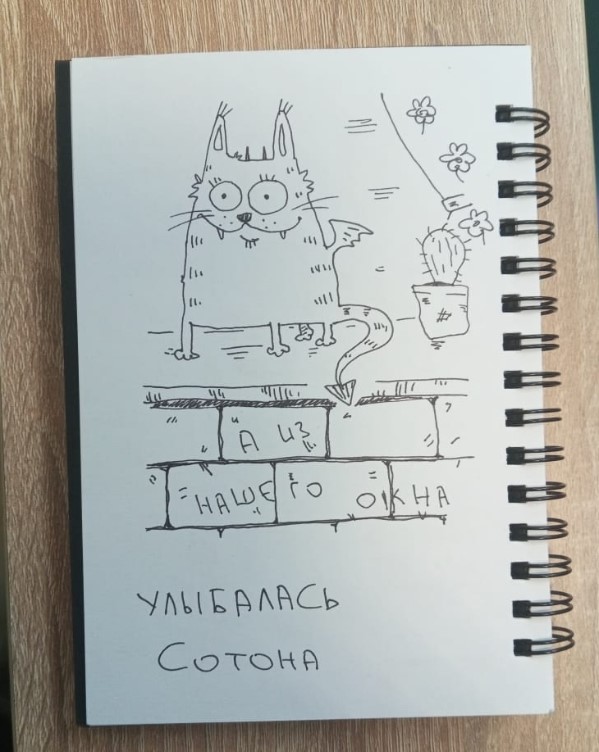 А ИЗ
НАШЕГО ОКНА
УЛЫБАЛАСЬ
СОТОНА